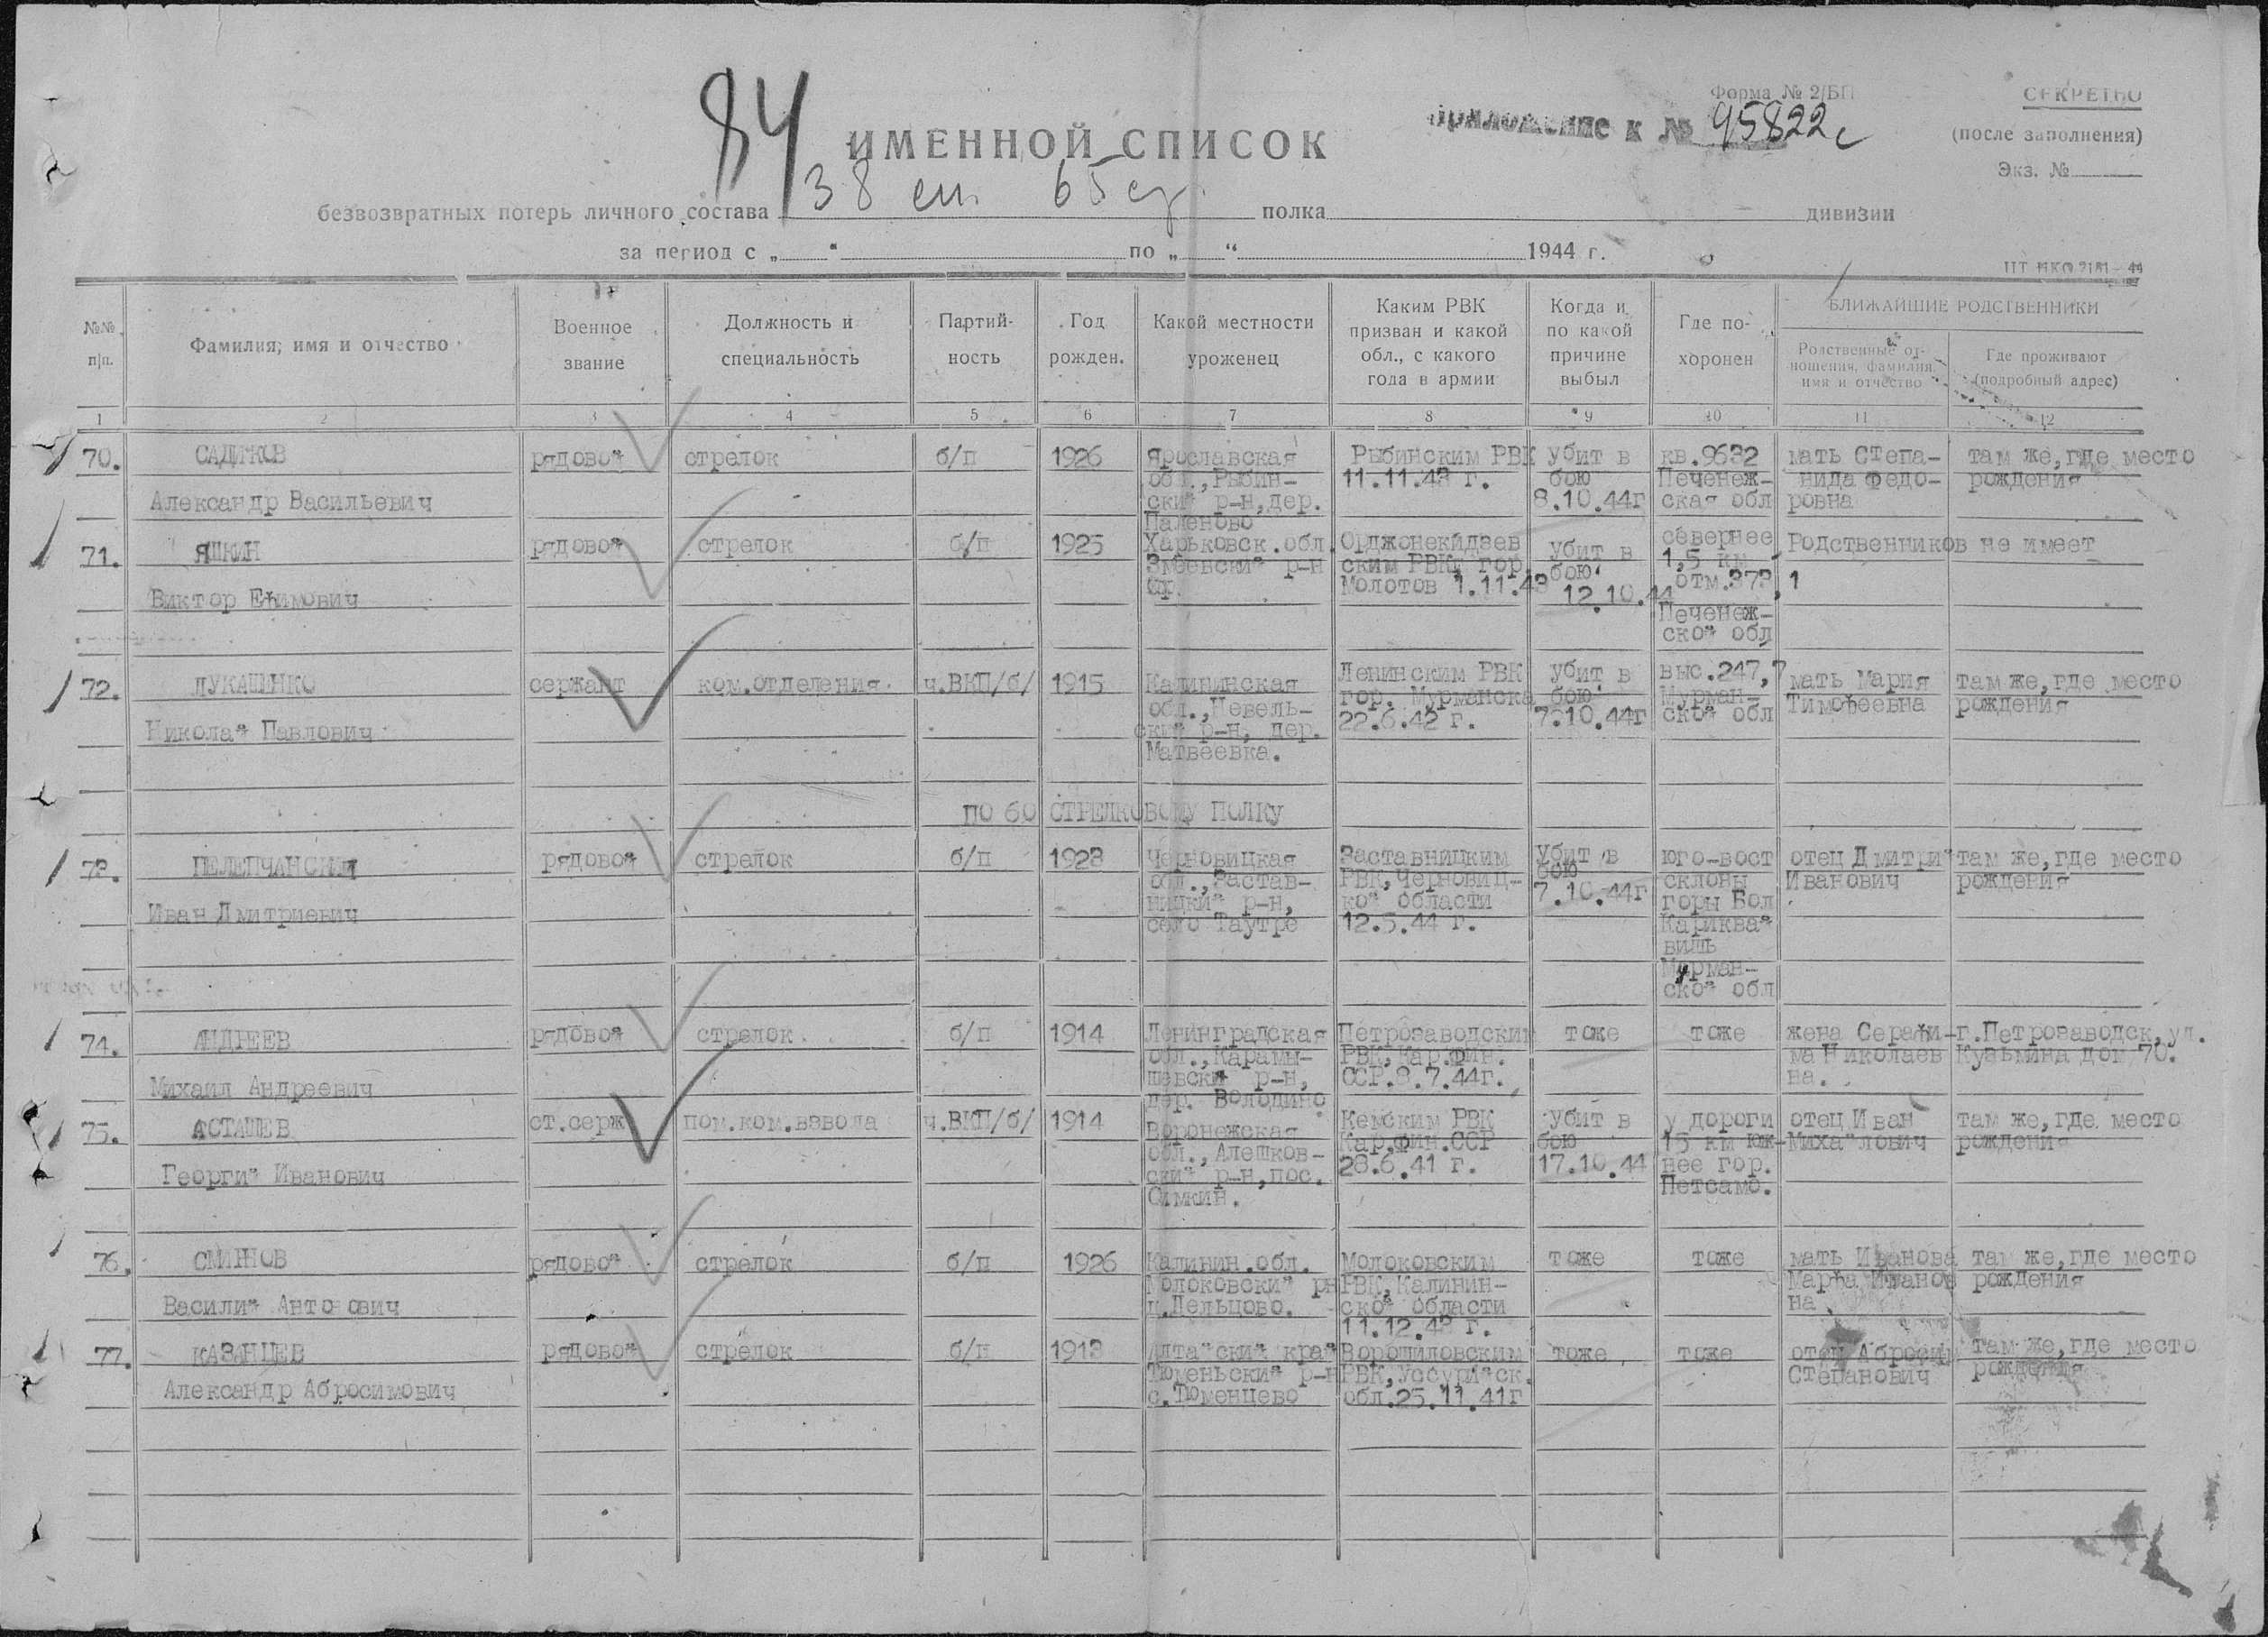 84
Форма № 2/БП
СЕКРЕТНО
ИМЕННОЙ СПИСОК
Приложение к № 45822с
(после заполнения)
Экз. №
безвозвратных потерь личного состава 38 сп. 65 сд. полка дивизии
за период с „ “ по „ “ 1944 г.
№№ п|п.
Фамилия, имя и отчество
Военное звание
Должность и специальность
Партий-ность
Год рожден.
Какой местности уроженец
Каким РВК призван и какой обл., с какого года в армии
Когда и по какой причине выбыл
Где по-хоронен
БЛИЖАЙШИЕ РОДСТВЕННИКИ
Родственные от-ношения, фамилия, имя и отчество
Где проживают (подробный адрес)
1 2 3 4 5 6 7 8 9 10 11 12
70. САДИКОВ рядовой стрелок б/п 1926 Ярославская Рыбинским РВК убит в кв.9632 мать Степа- там же,где место
обл.,Рыбин- 11.11.43 г. бою Печенеж- нида Федо- рождения
Александр Васильевич ский р-н,дер. 8.10.44г ская обл ровна
Паленово
71. ЯШКИН рядовой стрелок б/п 1925 Харьковск.обл. Орджонекидзев убит в севернее Родственников не имеет
Змеевский р-н ским РВК, гор. бою 1,5 км
Виктор Ефимович Молотов 1.11.43 12.10.44 отм.373,1
Печенеж-
ской обл
72. ЛУКАШЕНКО сержант ком.отделения ч.ВКП/б/ 1915 Калининская Ленинским РВК убит в выс.247,7 мать Мария там же,где место
обл.,Невель- гор. Мурманска бою Мурман- Тимофеевна рождения
Николай Павлович ский р-н, дер. 22.6.42 г. 7.10.44г ской обл
Матвеевка.
ПО 60 СТРЕЛКОВОМУ ПОЛКУ
73. ПЕЛЕПЧАНСКИЙ рядовой стрелок б/п 1923 Черновицкая Заставницким убит в юго-вост отец Дмитрий там же,где место
обл.,Застав- РВК,Черновиц- бою склоны Иванович рождения
Иван Дмитриевич ницкий р-н, кой области 7.10.44г горы Бол
село Таутре 12.5.44 г. Кариквай
вишь
Мурман-
ской обл
74. АНДРЕЕВ рядовой стрелок. б/п 1914 Ленинградская Петрозаводским тоже тоже жена Серафи- г.Петрозаводск,ул.
обл.,Карамы- РВК,Кар.Фин. ма Николаев Кузьмина дом 70.
Михаил Андреевич шевский р-н, ССР.8.7.44г. на.
дер. Володино
75. АСТАШЕВ ст.серж пом.ком.взвода ч.ВКП/б/ 1914 Воронежская Кемским РВК убит в у дороги отец Иван там же,где место
обл.,Алешков- Кар.фин.ССР бою 15 км юж- Михайлович рождения
Георгий Иванович ский р-н,пос. 28.6.41 г. 17.10.44 нее гор.
Симкин. Петсамо.
76. СМИРНОВ рядовой стрелок б/п 1926 Калинин.обл. Молоковским тоже тоже мать Иванова там же,где место
Молоковский рн РВК,Калинин- Марфа Иванов рождения
Василий Антонович д.Дельцово. ской области на
11.12.43 г.
77. КАЗАНЦЕВ рядовой стрелок б/п 1913 Алтайский край Ворошиловским тоже тоже отец Абросим там же,где место
Тюменьский р-н РВК,Уссурийск. Степанович рождения
Александр Абросимович с.Тюменцево обл.25.11.41г